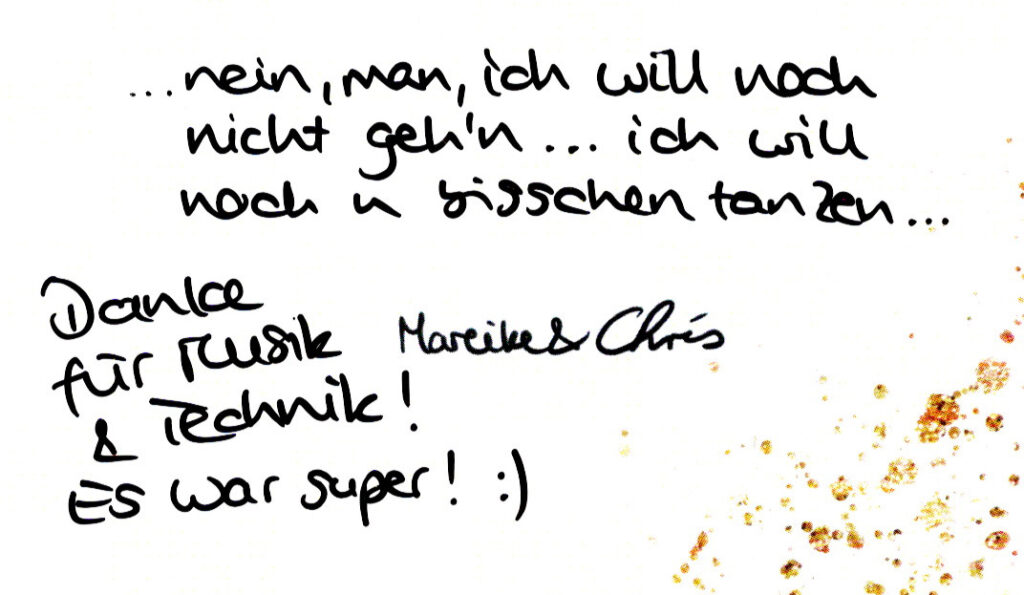 ...nein, man, ich will noch
nicht geh'n... ich will
noch n bisschen tanzen...
Danke
für Musik
& Technik!
Es war super! :)
Mareike & Chris